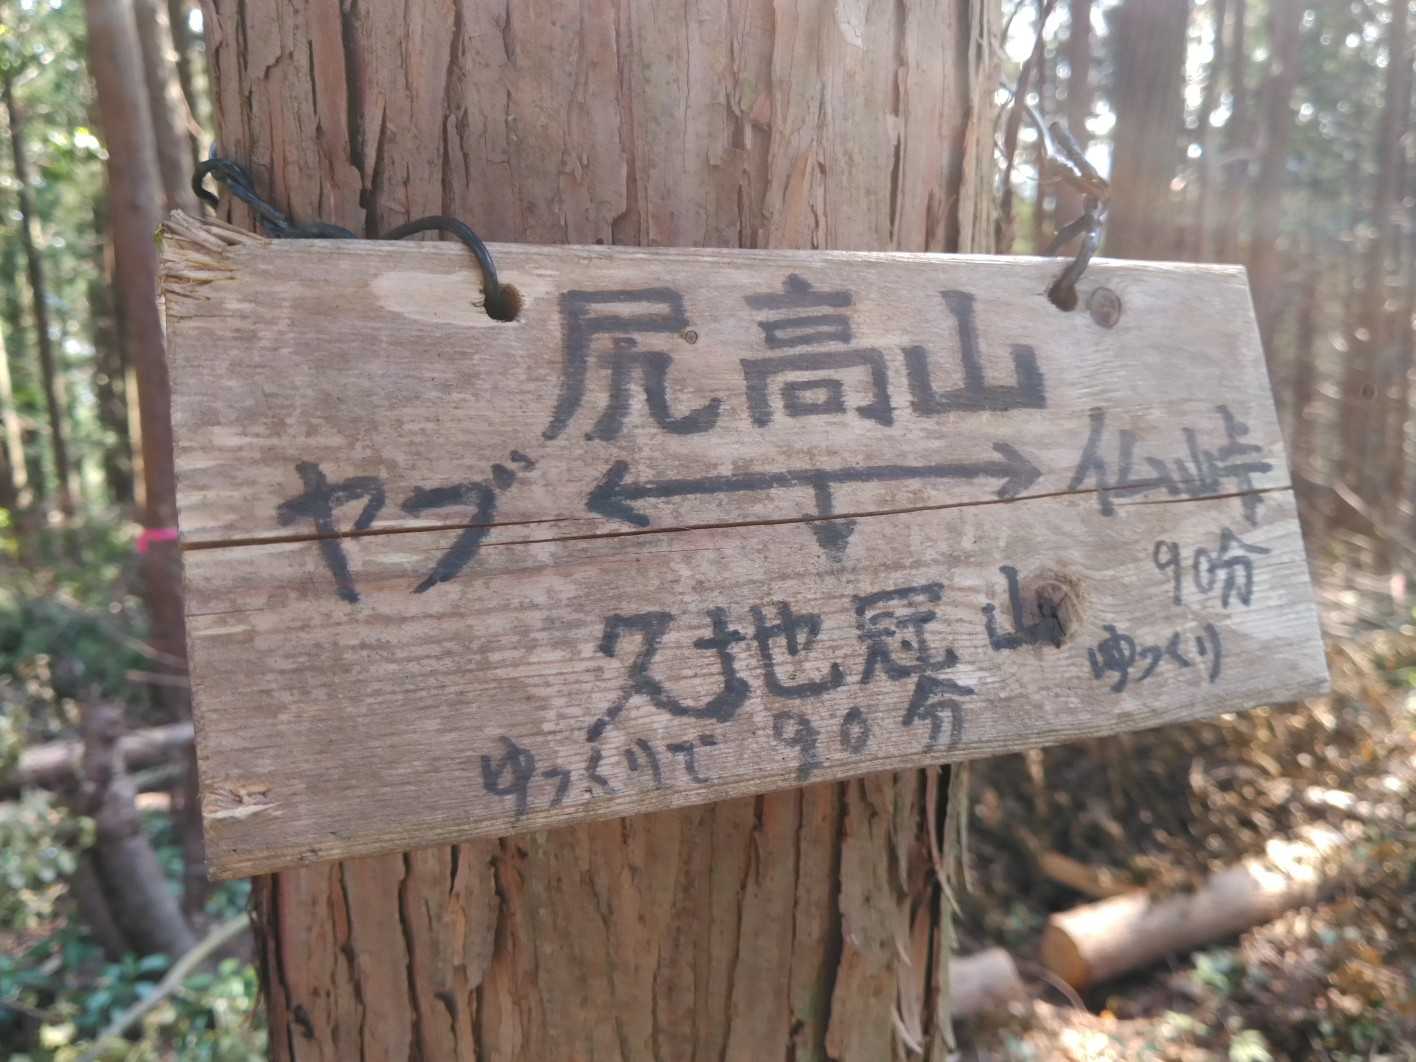 尻高山
ヤブ ←→ 仏峠
↓ 90分
久地冠山 ゆっくり
ゆっくりで 90分